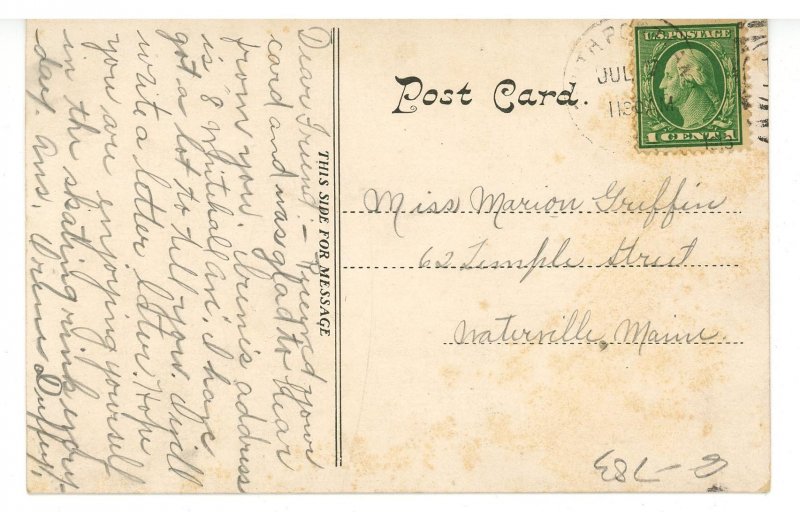 Post Card.
THIS SIDE FOR MESSAGE
U.S. POSTAGE
1 CENT 1
TH PO
JUL
1130 AM
Miss Marion Griffin
62 Temple Street
Waterville, Maine.
Dear Friend:- Received your
card and was glad to hear
from you. address
is 8 Whitehall Av. I have
got a lot to tell you. I will
write a letter later. Hope
you are enjoying yourself
in the skating rink every
day. Ans. Duffy.